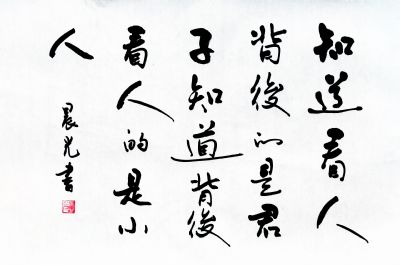 知道看人
背後的是君
子知道背後
看人的是小
人
晨光書